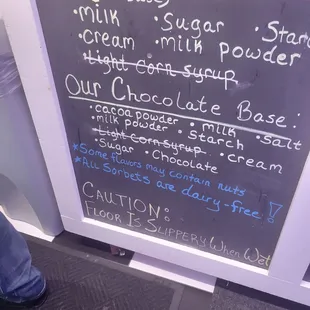 •milk •Sugar •Star
•cream •milk powder
•Light Corn syrup
Our Chocolate Base:
•cacoa powder •milk •salt
•milk powder •starch
•Light Corn syrup •cream
•Sugar •Chocolate
*Some flavors may contain nuts
*All Sorbets are dairy-free!
CAUTION:
FLOOR IS SLIPPERY WHEN WET